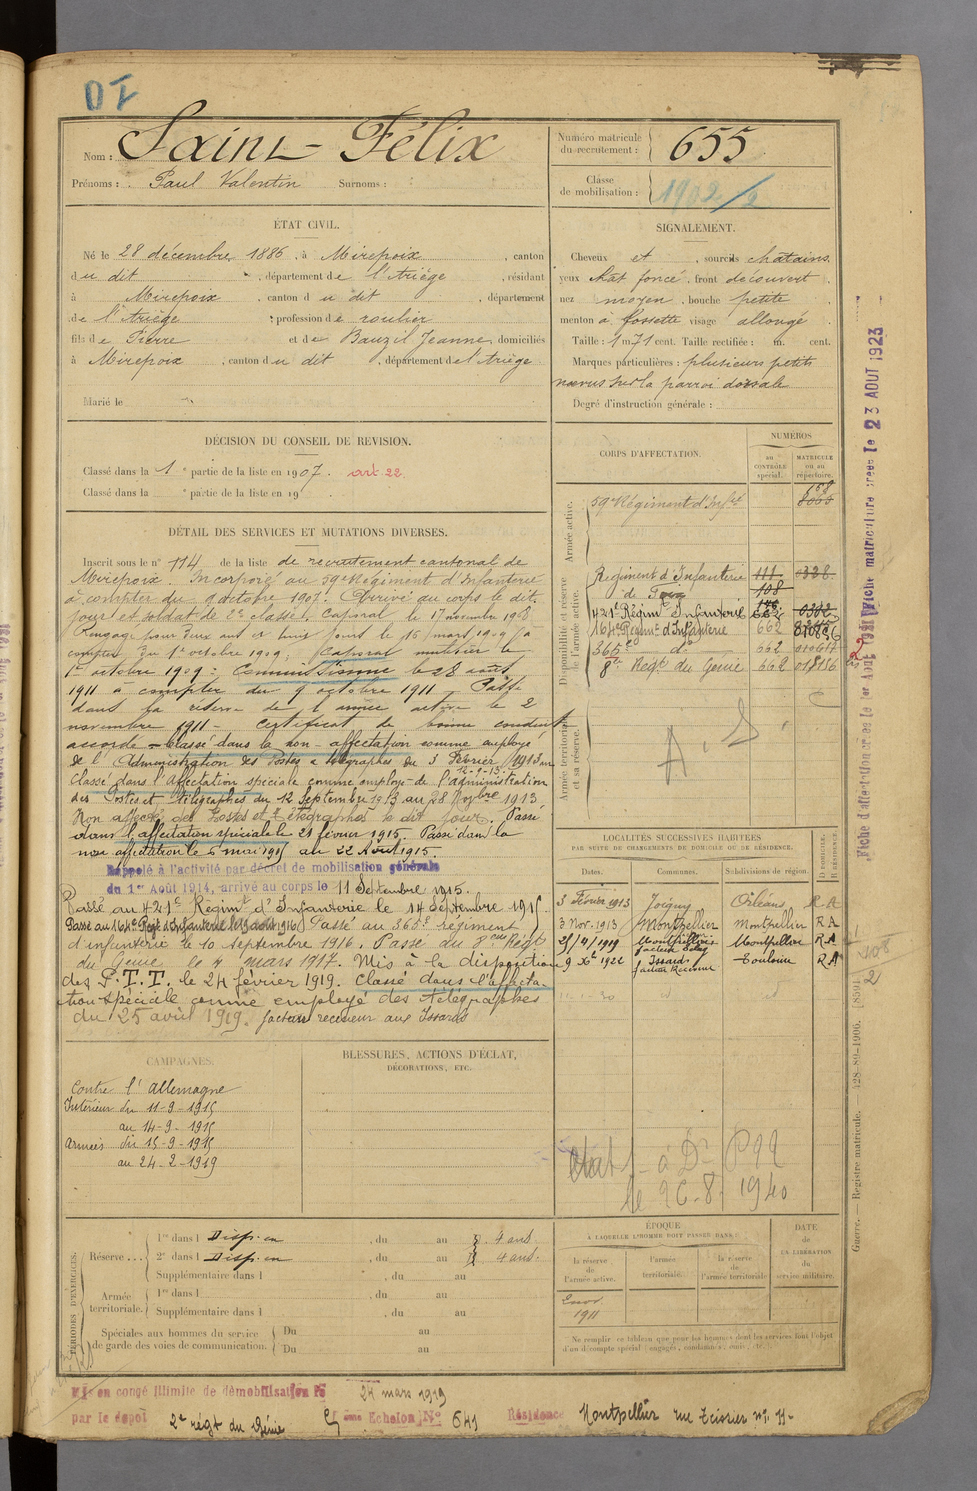 DT
Nom : Saint-Félix
Prénoms : Paul Valentin Surnoms :
Numéro matricule du recrutement : 655
Classe de mobilisation : 1902/2
ÉTAT CIVIL.
Né le 28 décembre 1886, à Mirepoix, canton
du dit, département de l'Ariège, résidant
à Mirepoix, canton du dit, département
de l'Ariège, profession de roulier
fils de Pierre et de Bauzil Jeanne, domiciliés
à Mirepoix, canton du dit, département de l'Ariège
Marié le
SIGNALEMENT.
Cheveux et sourcils chatains
yeux chat foncé, front découvert
nez moyen, bouche petite
menton à fossette visage allongé
Taille : 1 m 71 cent. Taille rectifiée : m. cent.
Marques particulières : plusieurs petits
nævus sur la parroi dorsale
Degré d'instruction générale :
DÉCISION DU CONSEIL DE REVISION.
Classé dans la 1e partie de la liste en 1907. art 22
Classé dans la e partie de la liste en 19
DÉTAIL DES SERVICES ET MUTATIONS DIVERSES.
Inscrit sous le n° 114 de la liste de recrutement cantonal de
Mirepoix. Incorporé au 59e Régiment d'Infanterie
à compter du 9 octobre 1907. Arrivé au corps le dit
jour et soldat de 2e classe. Caporal le 17 novembre 1908
Rengagé pour deux ans et huit jours le 16 mars 1909 à
compter du 1er octobre 1909. Caporal musicien le
1er octobre 1909. Commissionné le 28 août
1911 à compter du 9 octobre 1911. Passé
dans la réserve de l'armée active le 2
novembre 1911 - Certificat de bonne conduite
accordé - Classé dans la non-affectation comme employé
de l'Administration des Postes et télégraphes du 3 Février 1913 au
12-9-13.
Classé dans l'affectation spéciale comme employé de l'administration
des Postes et télégraphes du 12 Septembre 1913 au 28 Novbre 1913.
Non affecté des Postes et Télégraphes le dit jour. Passé
dans l'affectation spéciale le 21 février 1915. Passé dans la
non affectation le 6 mai 1915 au 22 Août 1915.
Rappelé à l'activité par décret de mobilisation générale
du 1er Août 1914, arrivé au corps le 11 Septembre 1915.
Passé au 421e Régimt d'Infanterie le 14 Septembre 1915.
Passé au 164e Régt d'Infanterie le 19 août 1916. Passé au 365e régiment
d'infanterie le 10 Septembre 1916. Passé du 8eme Régt
du Génie le 4 mars 1917. Mis à la disposition
des P.T.T. le 24 février 1919. Classé dans l'affecta-
tion spéciale comme employé des télégraphes
du 25 avril 1919. facteur receveur aux Issards
CORPS D'AFFECTATION.
NUMÉROS
au CONTRÔLE spécial.
MATRICULE ou au répertoire.
Armée active.
59e Régiment d'Infie
158
Disponibilité et réserve de l'armée active.
Régiment d'Infanterie 111 0328
108
421e Régimt Infanterie 662 0302
164e Régimt d'Infanterie 662
365e d° 662 010617
8e Régt du Génie 662 018156
Armée territoriale et sa réserve.
LOCALITÉS SUCCESSIVES HABITÉES
PAR SUITE DE CHANGEMENTS DE DOMICILE OU DE RÉSIDENCE.
Dates. Communes. Subdivisions de région. D DOMICILE. R RÉSIDENCE.
3 Février 1913 Joigny Orléans RA
3 Nov. 1913 Montpellier Montpellier RA
25/4/1919 Montpellier Montpellier RA
9 Xbre 1922 Issards facteur Receveur Toulouse RA
CAMPAGNES.
Contre l'Allemagne
Intérieur du 11-9-1915
au 14-9-1915
Armées du 15-9-1915
au 24-2-1919
BLESSURES, ACTIONS D'ÉCLAT,
DÉCORATIONS, ETC.
le 26.8. 1940
PÉRIODES D'EXERCICES.
Réserve...
1re dans l Disp. en , du au 4 ans.
2e dans l Disp. en , du au 4 ans.
Supplémentaire dans l , du au
Armée territoriale.
1re dans l , du au
Supplémentaire dans l , du au
Spéciales aux hommes du service
de garde des voies de communication.
Du au
Du au
ÉPOQUE
À LAQUELLE L'HOMME DOIT PASSER DANS :
la réserve de l'armée active.
l'armée territoriale.
la réserve de l'armée territoriale
DATE de LA LIBÉRATION du service militaire.
1911
Ne remplir ce tableau que pour les hommes dont les services font l'objet
d'un décompte spécial (engagés, condamnés, omis, etc.).
Mis en congé illimité de démobilisation le 24 mars 1919
par le dépôt 2e régt du Génie Echelon N° 641 Résidence Montpellier rue Teissier n° 11-
Fiche d'affectation créée le 1er Août 1921 Fiche matriculaire créée le 23 AOUT 1923
Guerre. — Registre matricule. 428-89-1906. [8591]